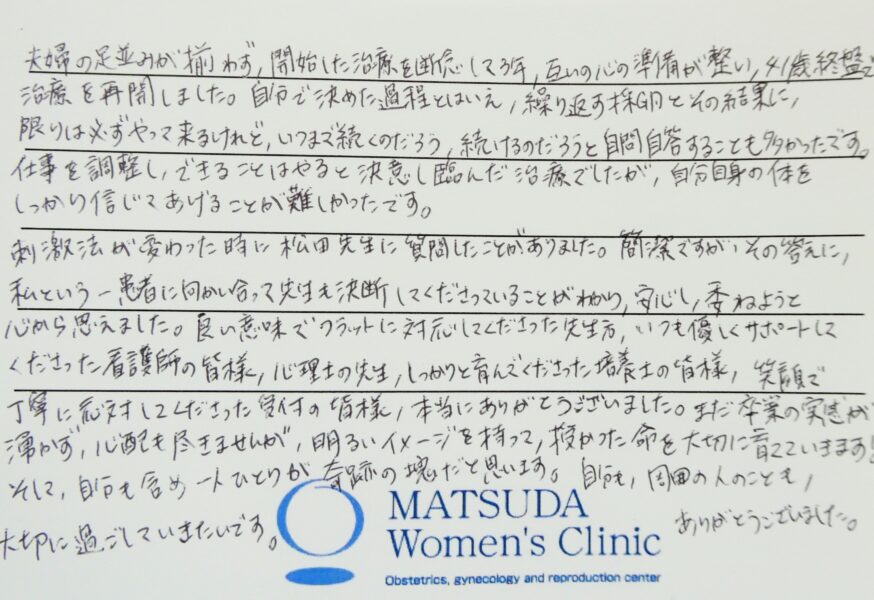 夫婦の足並みが揃わず，開始した治療を断念して3年，互いの心の準備が整い，41歳終盤で
治療を再開しました。自分で決めた過程とはいえ，繰り返す採卵とその結果に，
限りは必ずやって来るけれど，いつまで続くのだろう，続けるのだろうと自問自答することも多かったです。
仕事を調整し，できることはやると決意し臨んだ治療でしたが，自分自身の体を
しっかり信じてあげることが難しかったです。
刺激法が変わった時に松田先生に質問したことがありました。簡潔ですが，その答えに，
私という一患者に向かい合って先生も決断してくださっていることがわかり，安心し，委ねようと
心から思えました。良い意味でフラットに対応してくださった先生方，いつも優しくサポートして
くださった看護師の皆様，心理士の先生，しっかりと育んでくださった培養士の皆様，笑顔で
丁寧に応対してくださった受付の皆様，本当にありがとうございました。まだ卒業の実感が
湧かず，心配も尽きませんが，明るいイメージを持って，授かった命を大切に育てていきます！
そして，自分も含め一人ひとりが奇跡の塊だと思います。自分も，周囲の人のことも，
大切に過ごしていきたいです。
ありがとうございました。
MATSUDA
Women's Clinic
Obstetrics, gynecology and reproduction center